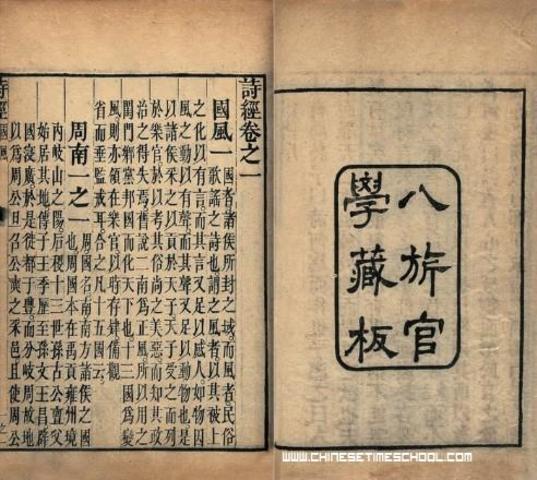 八旂官
學藏板
詩經卷之一
國風一 國者諸侯所封之域而風者民俗
歌謠之詩也謂之風者以其被上
之化以有言而其言又足以感人如物因
風之動以有聲而其聲又足以動物也是
以諸侯采之以貢於天子天子受之而列
於樂官於以考其俗尚之美惡而知其政
治之得失焉舊說二南為正風所以用之
閨門鄉黨邦國而化天下也十三國為變
風則亦領在樂官以時存肄備觀
省而垂監戒耳合之凡十五國云
周南一之一 周國名南南方諸侯之國
也周國本在禹貢雍州境
內岐山之陽后稷十三世孫古公亶父
始居其地傳子王季歷至孫文王昌辟
國寖廣於是徙都于豐而分岐周故地
以為周公旦召公奭之采邑且使周公
詩經 國風
WWW.CHINESETIMESCHOOL.COM